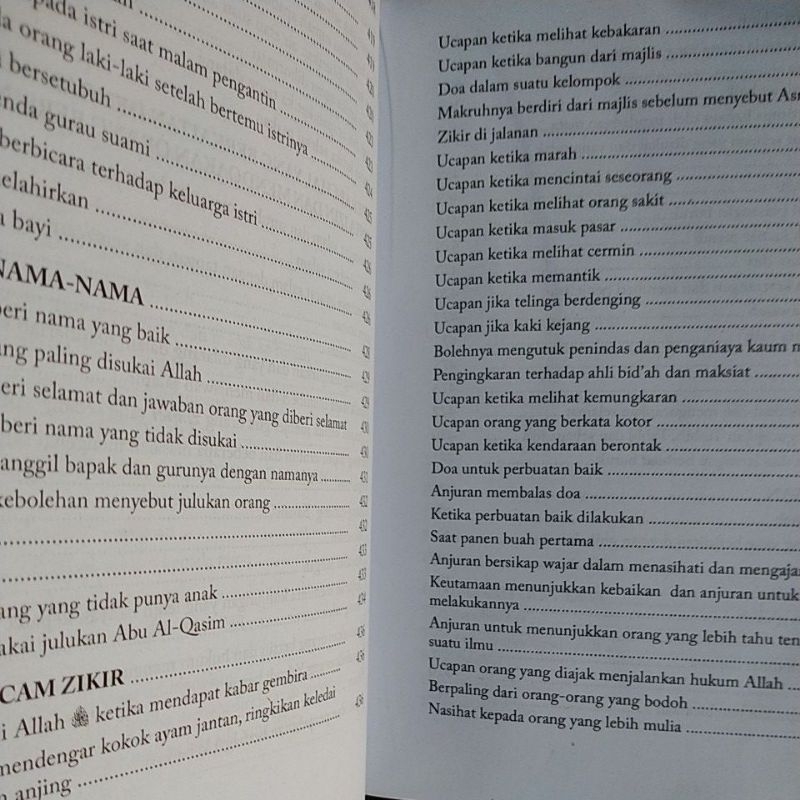 pada istri saat malam pengantin
orang laki-laki setelah bertemu istrinya
bersetubuh
gurau suami
berbicara terhadap keluarga istri
bayi
NAMA-NAMA
nama yang baik
paling disukai Allah
selamat dan jawaban orang yang diberi selamat
beri nama yang tidak disukai
bapak dan gurunya dengan namanya
kebolehan menyebut julukan orang
yang tidak punya anak
julukan Abu Al-Qasim
ZIKIR
Allah ﷺ ketika mendapat kabar gembira
mendengar kokok ayam jantan, ringkikan keledai
anjing
Ucapan ketika melihat kebakaran
Ucapan ketika bangun dari majlis
Doa dalam suatu kelompok
Makruhnya berdiri dari majlis sebelum menyebut
Zikir di jalanan
Ucapan ketika marah
Ucapan ketika mencintai seseorang
Ucapan ketika melihat orang sakit
Ucapan ketika masuk pasar
Ucapan ketika melihat cermin
Ucapan ketika memantik
Ucapan jika telinga berdenging
Ucapan jika kaki kejang
Bolehnya mengutuk penindas dan penganiaya kaum
Pengingkaran terhadap ahli bid'ah dan maksiat
Ucapan ketika melihat kemungkaran
Ucapan orang yang berkata kotor
Ucapan ketika kendaraan berontak
Doa untuk perbuatan baik
Anjuran membalas doa
Ketika perbuatan baik dilakukan
Saat panen buah pertama
Anjuran bersikap wajar dalam menasihati dan
Keutamaan menunjukkan kebaikan dan anjuran untuk
melakukannya
Anjuran untuk menunjukkan orang yang lebih tahu
suatu ilmu
Ucapan orang yang diajak menjalankan hukum Allah
Berpaling dari orang-orang yang bodoh
Nasihat kepada orang yang lebih mulia